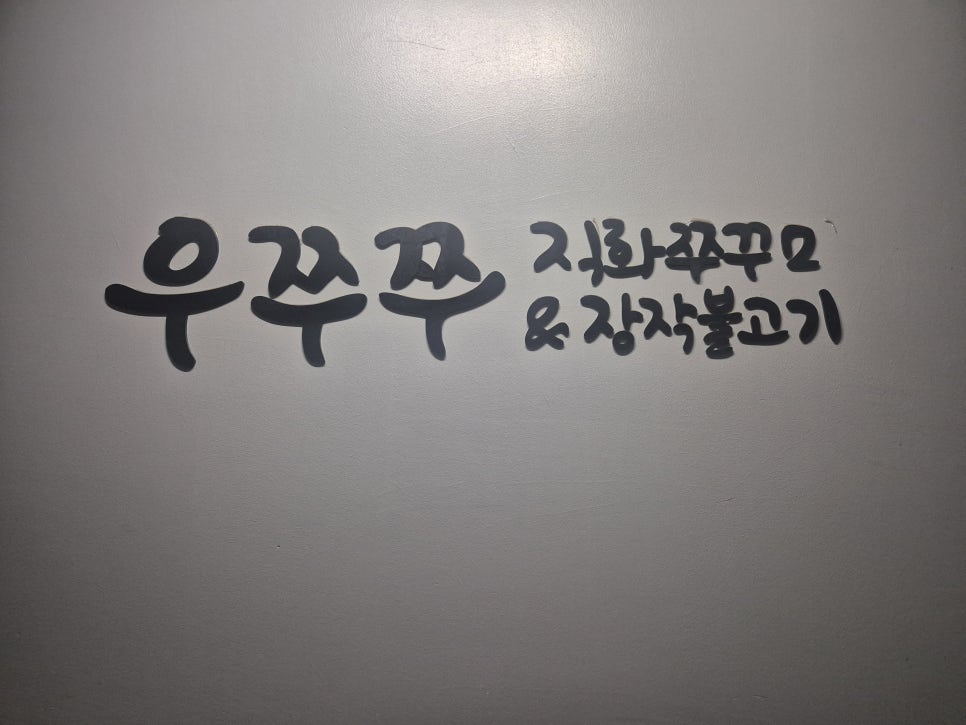 우쭈쭈
직화쭈꾸ㅁ
& 장작불고기